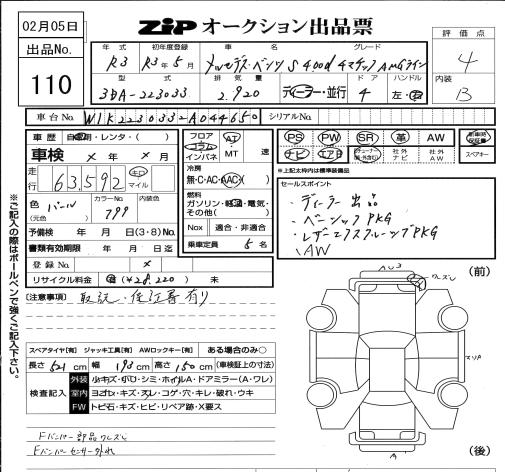 02月05日
ZiP オークション出品票
出品No.
110
年式 初年度登録 車名 グレード
R3 R3年5月 メルセデス・ベンツ S400d 4マチック AMGライン
型式 排気量 ドア ハンドル
3DA-223033 2.920 ディーラー・並行 4 左・右
評価点
4
内装
B
車台No. W1K2230332A044650 シリアルNo.
車歴 自家用・レンタ・( )
車検 × 年 × 月
走行 63,592 キロ マイル
色 パール カラーNo. 799 内装色
(元色)
予備検 年 月 日(3・8)No.
書類有効期限 年 月 日迄
登録No. ×
リサイクル料金 有(¥28,220) 未
フロア コラム インパネ AT MT 速
冷房
無・C・AC・AAC( )
燃料
ガソリン・軽油・電気・その他( )
Nox 適合・非適合
乗車定員 5 名
PS PW SR 革 AW 新車時保証書
ナビ エアB 社外ナビ 社外AW スペアキー
*上記太枠内は標準装備品
セールスポイント
・ディーラー出品
・ベーシックPKG
・レザーエクスクルーシブPKG
・AW
[注意事項] 取説・保証書有り
※ご記入の際はボールペンで強くご記入下さい。
スペアタイヤ[有] ジャッキ工具[有] AWロックキー[有] ある場合のみ○
長さ 521 cm 幅 193 cm 高さ 150 cm (車検証上の寸法)
検査記入
外装 小キズ・小凹・シミ・ホイルA・ドアミラー(A・ワレ)
室内 ヨゴレ・キズ・スレ・コゲ・穴・キレ・破れ・ウキ
FW トビ石・キズ・ヒビ・リペア跡・X要ス
Fバンパー部品ワレズレ
Fバンパーセンサー外れ
(前)
ワレズレ
スリA
A
(後)